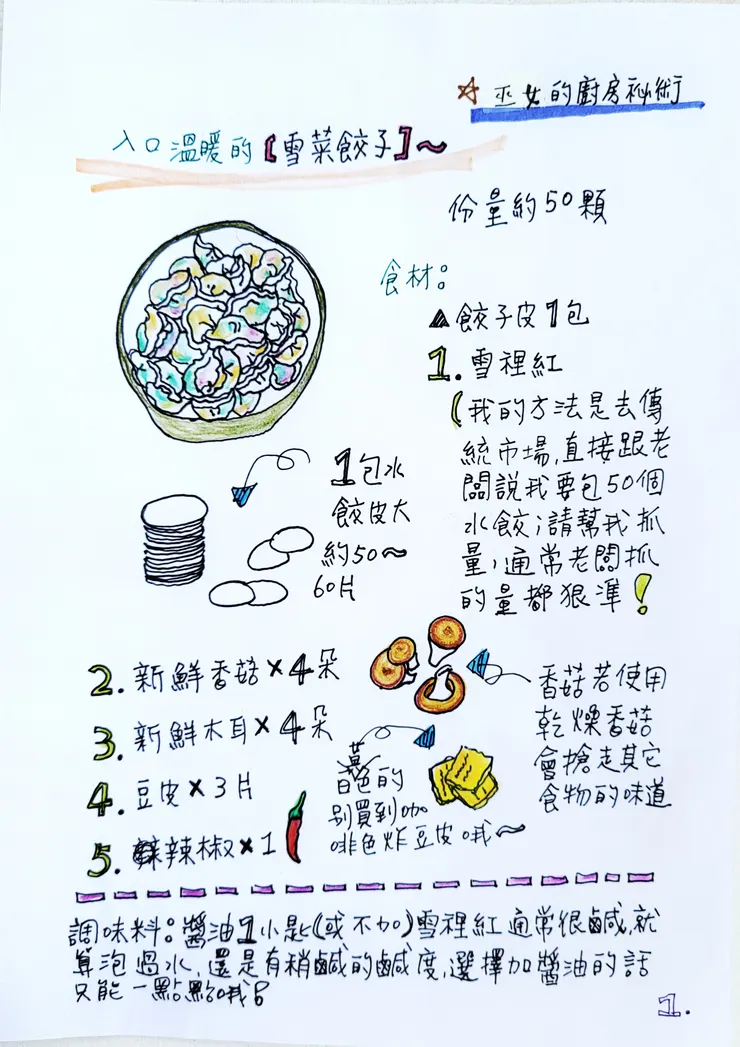 ☆ 巫女的廚房祕術
入口溫暖的【雪菜餃子】~
份量約50顆
食材:
▲餃子皮1包
1. 雪裡紅
(我的方法是去傳
統市場,直接跟老
闆說我要包50個
水餃;請幫我抓
量,通常老闆抓
的量都狠準!
1包水
餃皮大
約50~
60片
2. 新鮮香菇×4朵
3. 新鮮木耳×4朵
4. 豆皮×3片
5. 辣椒×1
香菇若使用
乾燥香菇
會搶走其它
食物的味道
白色的
別買到咖
啡色炸豆皮哦~
調味料:醬油1小匙(或不加)雪裡紅通常很鹹,就
算泡過水,還是有稍鹹的鹹度,選擇加醬油的話
只能一點點哦!
1.